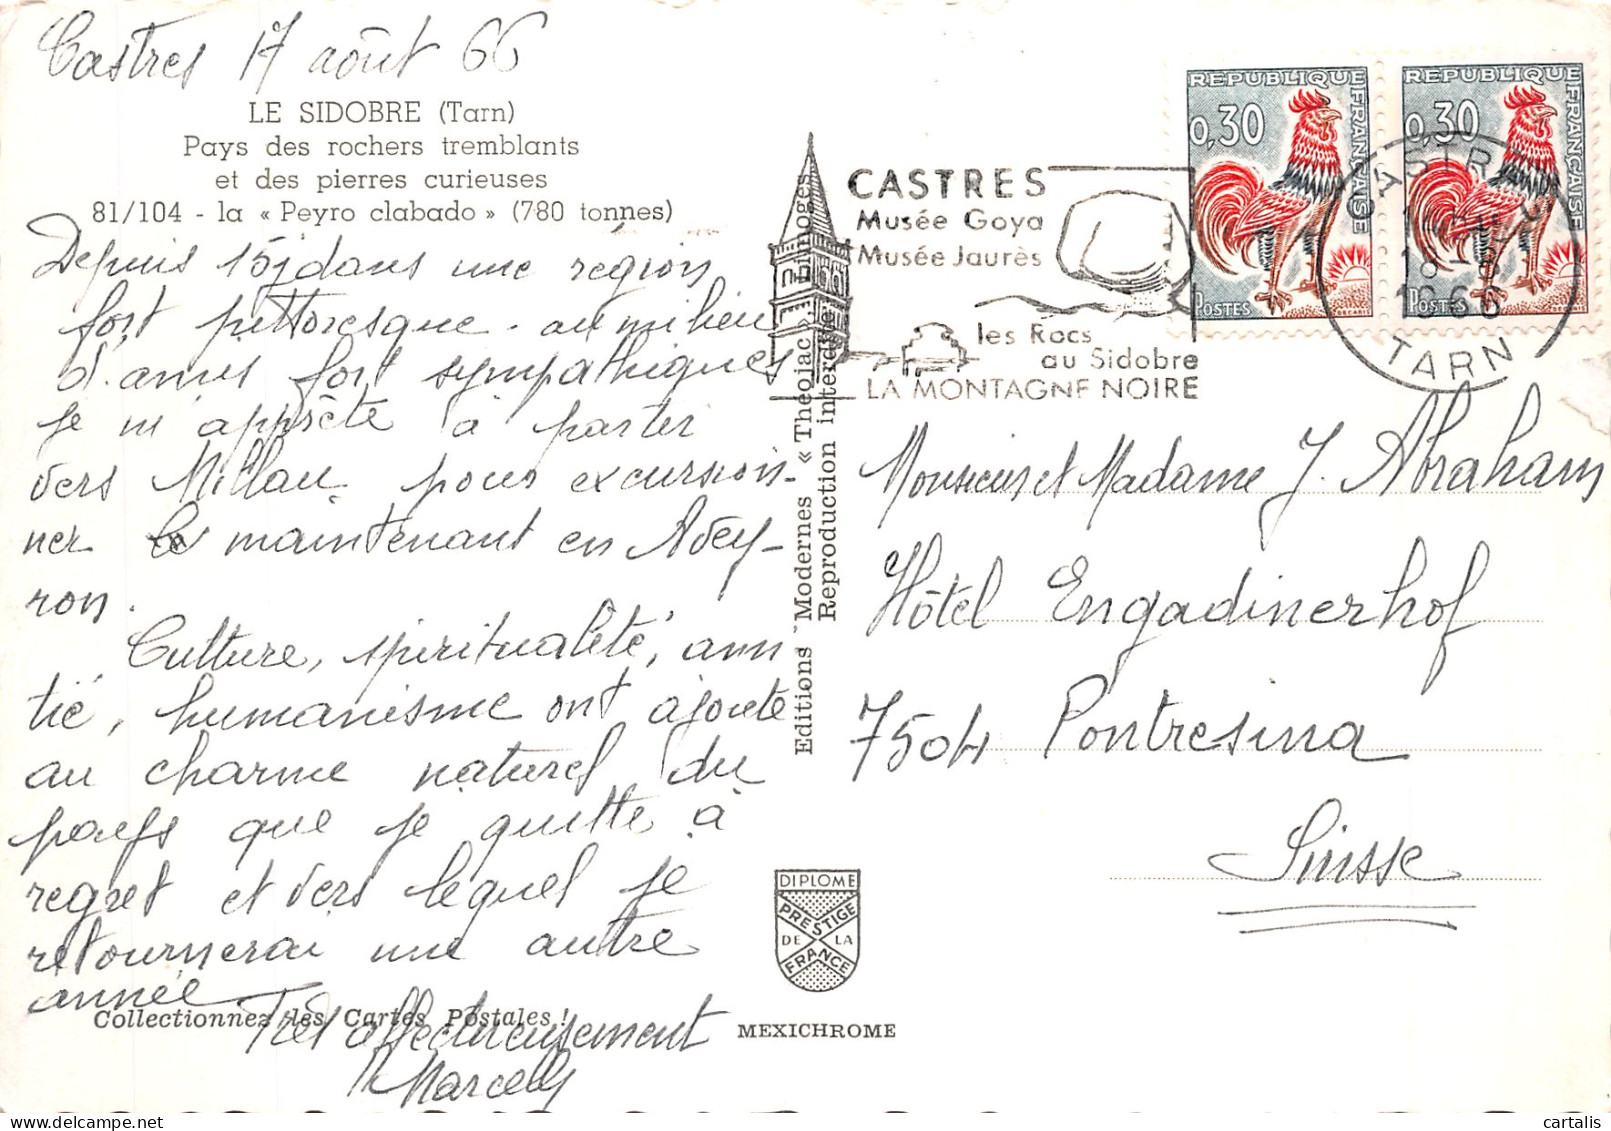 Castres 17 août 66
LE SIDOBRE (Tarn)
Pays des rochers tremblants
et des pierres curieuses
81/104 - la « Peyro clabado » (780 tonnes)
Depuis 15j dans une région
fort pittoresque. au milieu
d'amis fort sympathiques
je m'apprête à partir
vers Millau pour excursion-
ner maintenant en Avey-
ron.
Culture, spiritualité, ami
tié, humanisme ont ajouté
au charme naturel du
pays que je quitte à
regret et vers lequel je
retournerai une autre
année
Très affectueusement
Marcel
Collectionnez les Cartes Postales !
Editions Modernes « Théojac » Limoges
Reproduction interdite
DIPLOME
PRESTIGE
DE LA
FRANCE
MEXICHROME
CASTRES
Musée Goya
Musée Jaurès
les Rocs
au Sidobre
LA MONTAGNE NOIRE
REPUBLIQUE FRANÇAISE
0,30
POSTES
DECARIS
REPUBLIQUE FRANÇAISE
0,30
POSTES
DECARIS
CASTRES
18 - 8
1966
TARN
Monsieur et Madame J. Abraham
Hôtel Engadinerhof
7504 Pontresina
Suisse
cartalis